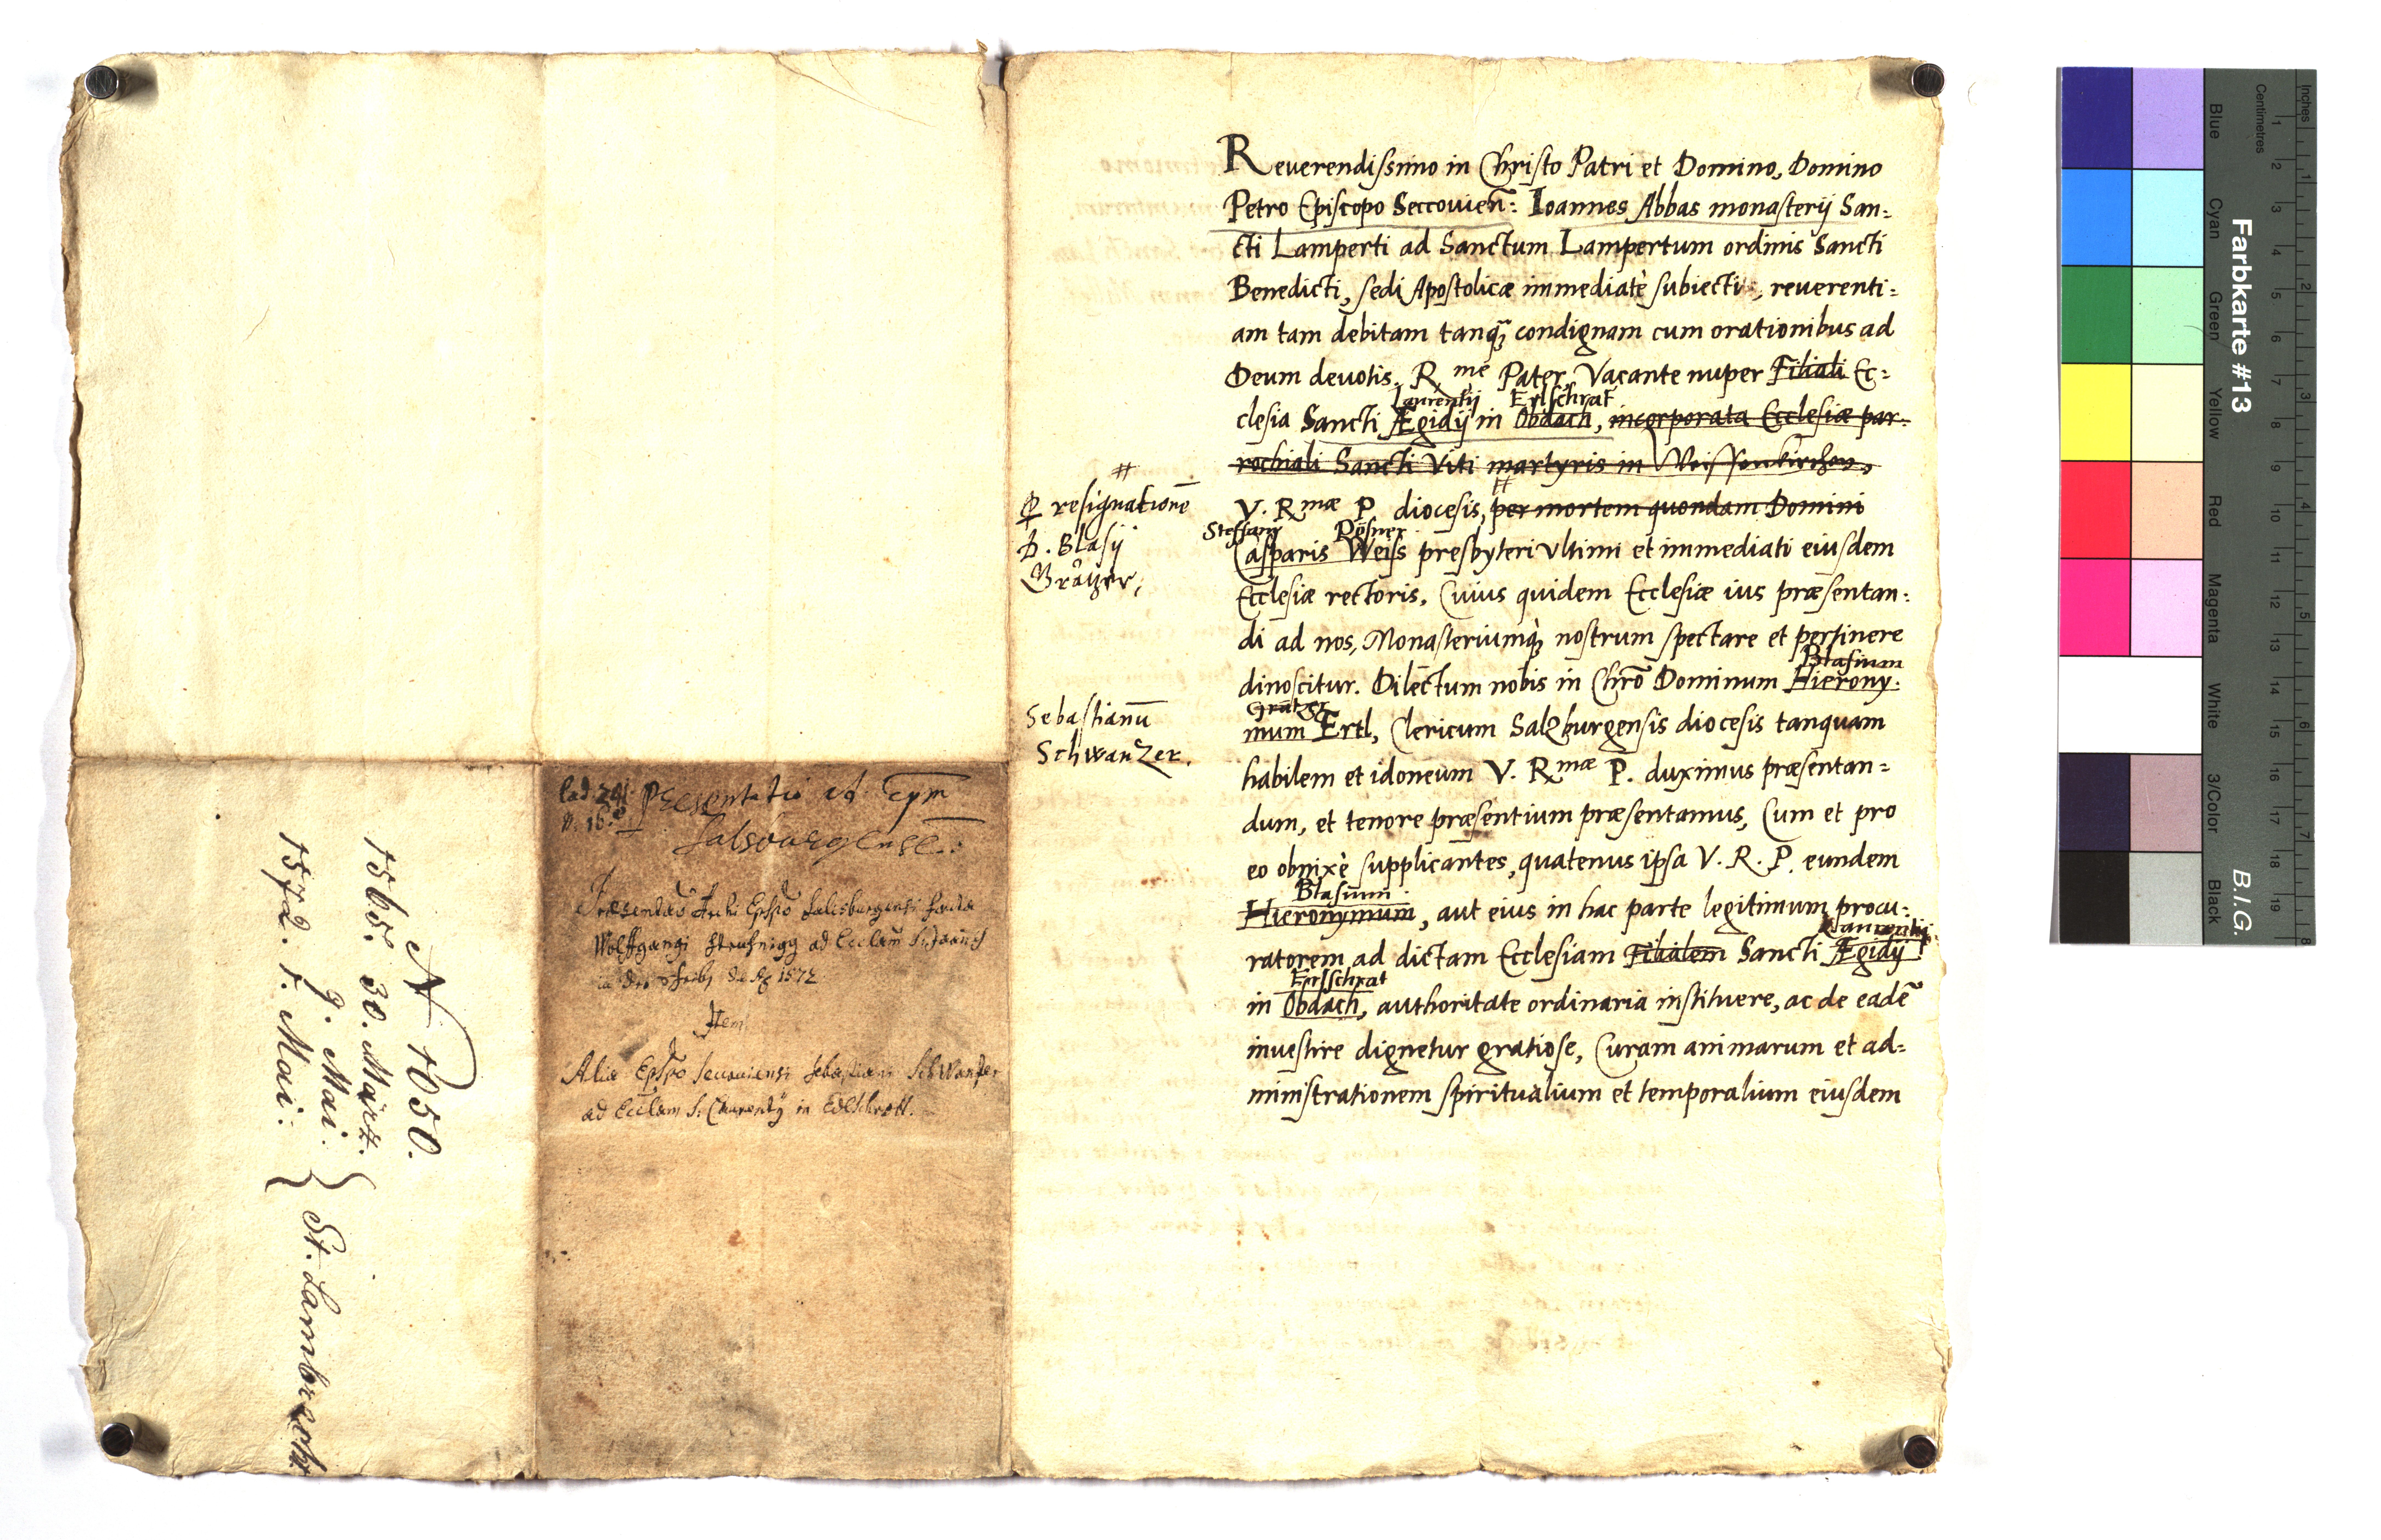 Reverendissimo in Christo Patri et Domino, Domino
Petro Episcopo Seccovieñ: Ioannes Abbas monasterij San=
cti Lamperti ad Sanctum Lampertum ordinis Sancti
Benedicti, sedi Apostolicæ immediatè subiecti, reuerenti=
am tam debitam tanqꝫ condignam cum orationibus ad
Deum deuotis. R.me Pater, Vacante nuper Filiali Ec=
Laurentij Erlschrat
clesia Sancti Ægidij in Obdach, incorporata Ecclesiæ par=
rochiali Sancti Viti martyris in Weissenkirchen,
V. Rmæ P. diocesis, per mortem quondam Domini
Steffany Rösner
Casparis Weiss presbyteri vltimi et immediati eiusdem
Ecclesiæ rectoris, Cuius quidem Ecclesiæ ius præsentan:
di ad nos, Monasteriumq̀ nostrum spectare et pertinere
Blasium
dinoscitur. Dilectum nobis in Chrō Dominum Hierony:
Grätzer
mum Ertl, Clericum Salzburgensis diocesis tanquam
habilem et idoneum V. Rmæ P. duximus præsentan=
dum, et tenore præsentium præsentamus, Cum et pro
eo obnixè supplicantes, quatenus ipsa V. R. P. eundem
Blasium
Hieronymum, aut eius in hac parte legitimum procu:
Laurentij
ratorem ad dictam Ecclesiam Filialem Sancti Ægidij
Erlschrat
in Obdach, authoritate ordinaria instituere, ac de eadē
inuestire dignetur gratiose, Curam animarum et ad=
ministrationem spiritualium et temporalium eiusdem
#
ꝑ resignationē
D. Blasij
Grätzer,
Sebastianū
Schwanzer.
Lad. 241.
N. 16.
Præsentatio ad
Salsburgense.:
Archi Epīpo Salisburgensi
Wolffgangi ad Ecclām S. Joannis
1572
Item
Alia Epīpo Secouiensi Sebastiani Schwanzer
ad Ecclām S. Laurentij in Edlschrott.
N 1050.
1565. 30. März.
9. Mai.
1572. 1. Mai.
St. Lambrecht